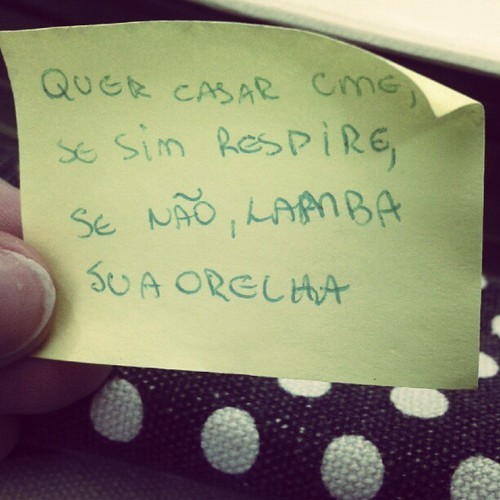 QUER CASAR CME,
SE SIM RESPIRE,
SE NÃO, LAMBA
SUA ORELHA